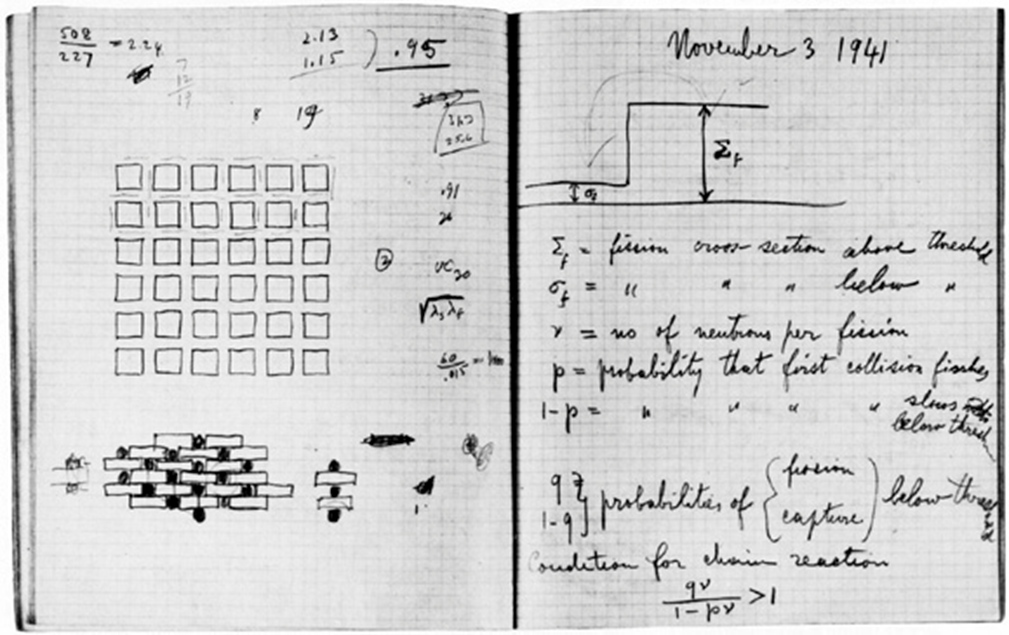 508
227
= 2.24
7
12
19
2.13
1.15
.95
8 19
.91
2
UC30
√λsλf
60
.015
November 3 1941
Σf
σf
Σf = fission cross section above threshold
σf = " " " below "
ν = no of neutrons per fission
p = probability that first collision fissions
1-p = " " " " slows
below thresh
q
1-q } probabilities of { fission
capture } below thres
Condition for chain reaction
qν
1-pν > 1